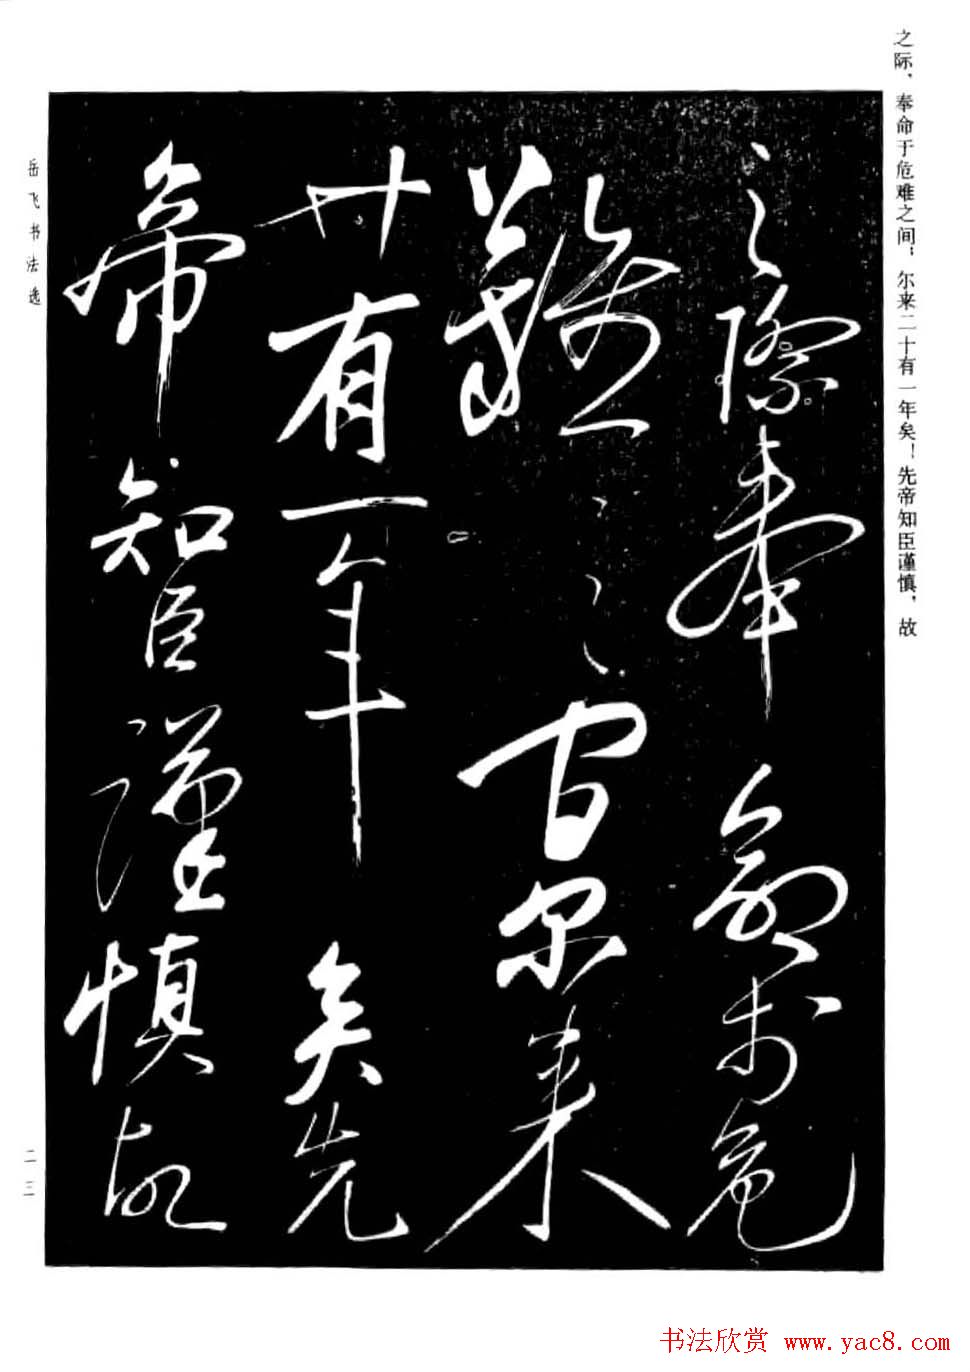 之际，奉命于危难之间；尔来二十有一年矣！先帝知臣谨慎，故
之際奉命於危
難之間爾来
廿有一年矣先
帝知臣謹慎故
岳飞书法选
二三
书法欣赏 www.yac8.com